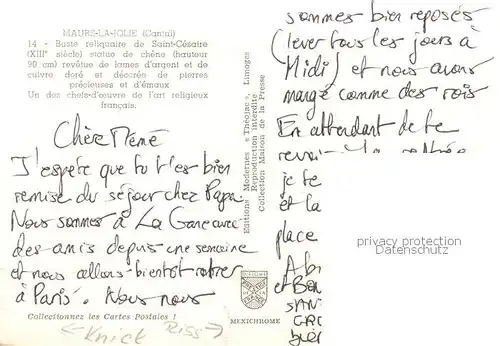 MAURS-LA-JOLIE (Cantal)
14 - Buste reliquaire de Saint-Césaire
(XIIIe siècle) statue de chêne (hauteur
90 cm) revêtue de lames d'argent et de
cuivre doré et décorée de pierres
précieuses et d'émaux
Un des chefs-d'œuvre de l'art religieux
français.
Chère Mémé
J'espère que tu t'es bien
remise du séjour chez Papa.
Nous sommes à La
des amis depuis une semaine
et nous allons bientôt rentrer
à Paris. Nous nous
Collectionnez les Cartes Postales !
<- Knick Riss ->
Editions Modernes « Théojac », Limoges
Reproduction Interdite
Collection Maison de la Presse
MEXICHROME
sommes bien reposés
(lever tous les jours à
Midi) et nous avons
mangé comme des rois
En attendant de te
je te
et la
place
privacy protection
Datenschutz